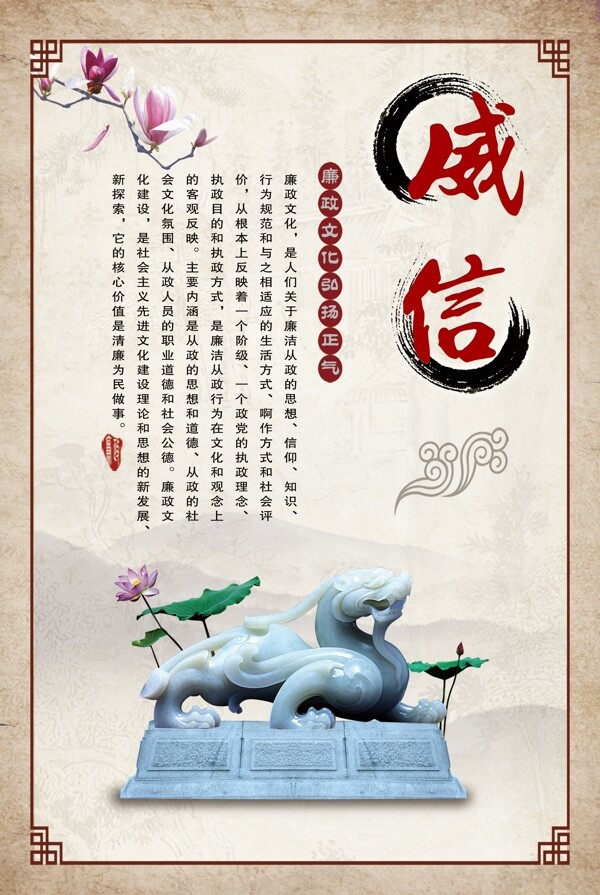 威信
廉政文化弘扬正气
廉政文化，是人们关于廉洁从政的思想、信仰、知识、
行为规范和与之相适应的生活方式、啊作方式和社会评
价，从根本上反映着一个阶级、一个政党的执政理念、
执政目的和执政方式，是廉洁从政行为在文化和观念上
的客观反映。主要内涵是从政的思想和道德、从政的社
会文化氛围、从政人员的职业道德和社会公德。廉政文
化建设，是社会主义先进文化建设理论和思想的新发展、
新探索，它的核心价值是清廉为民做事。